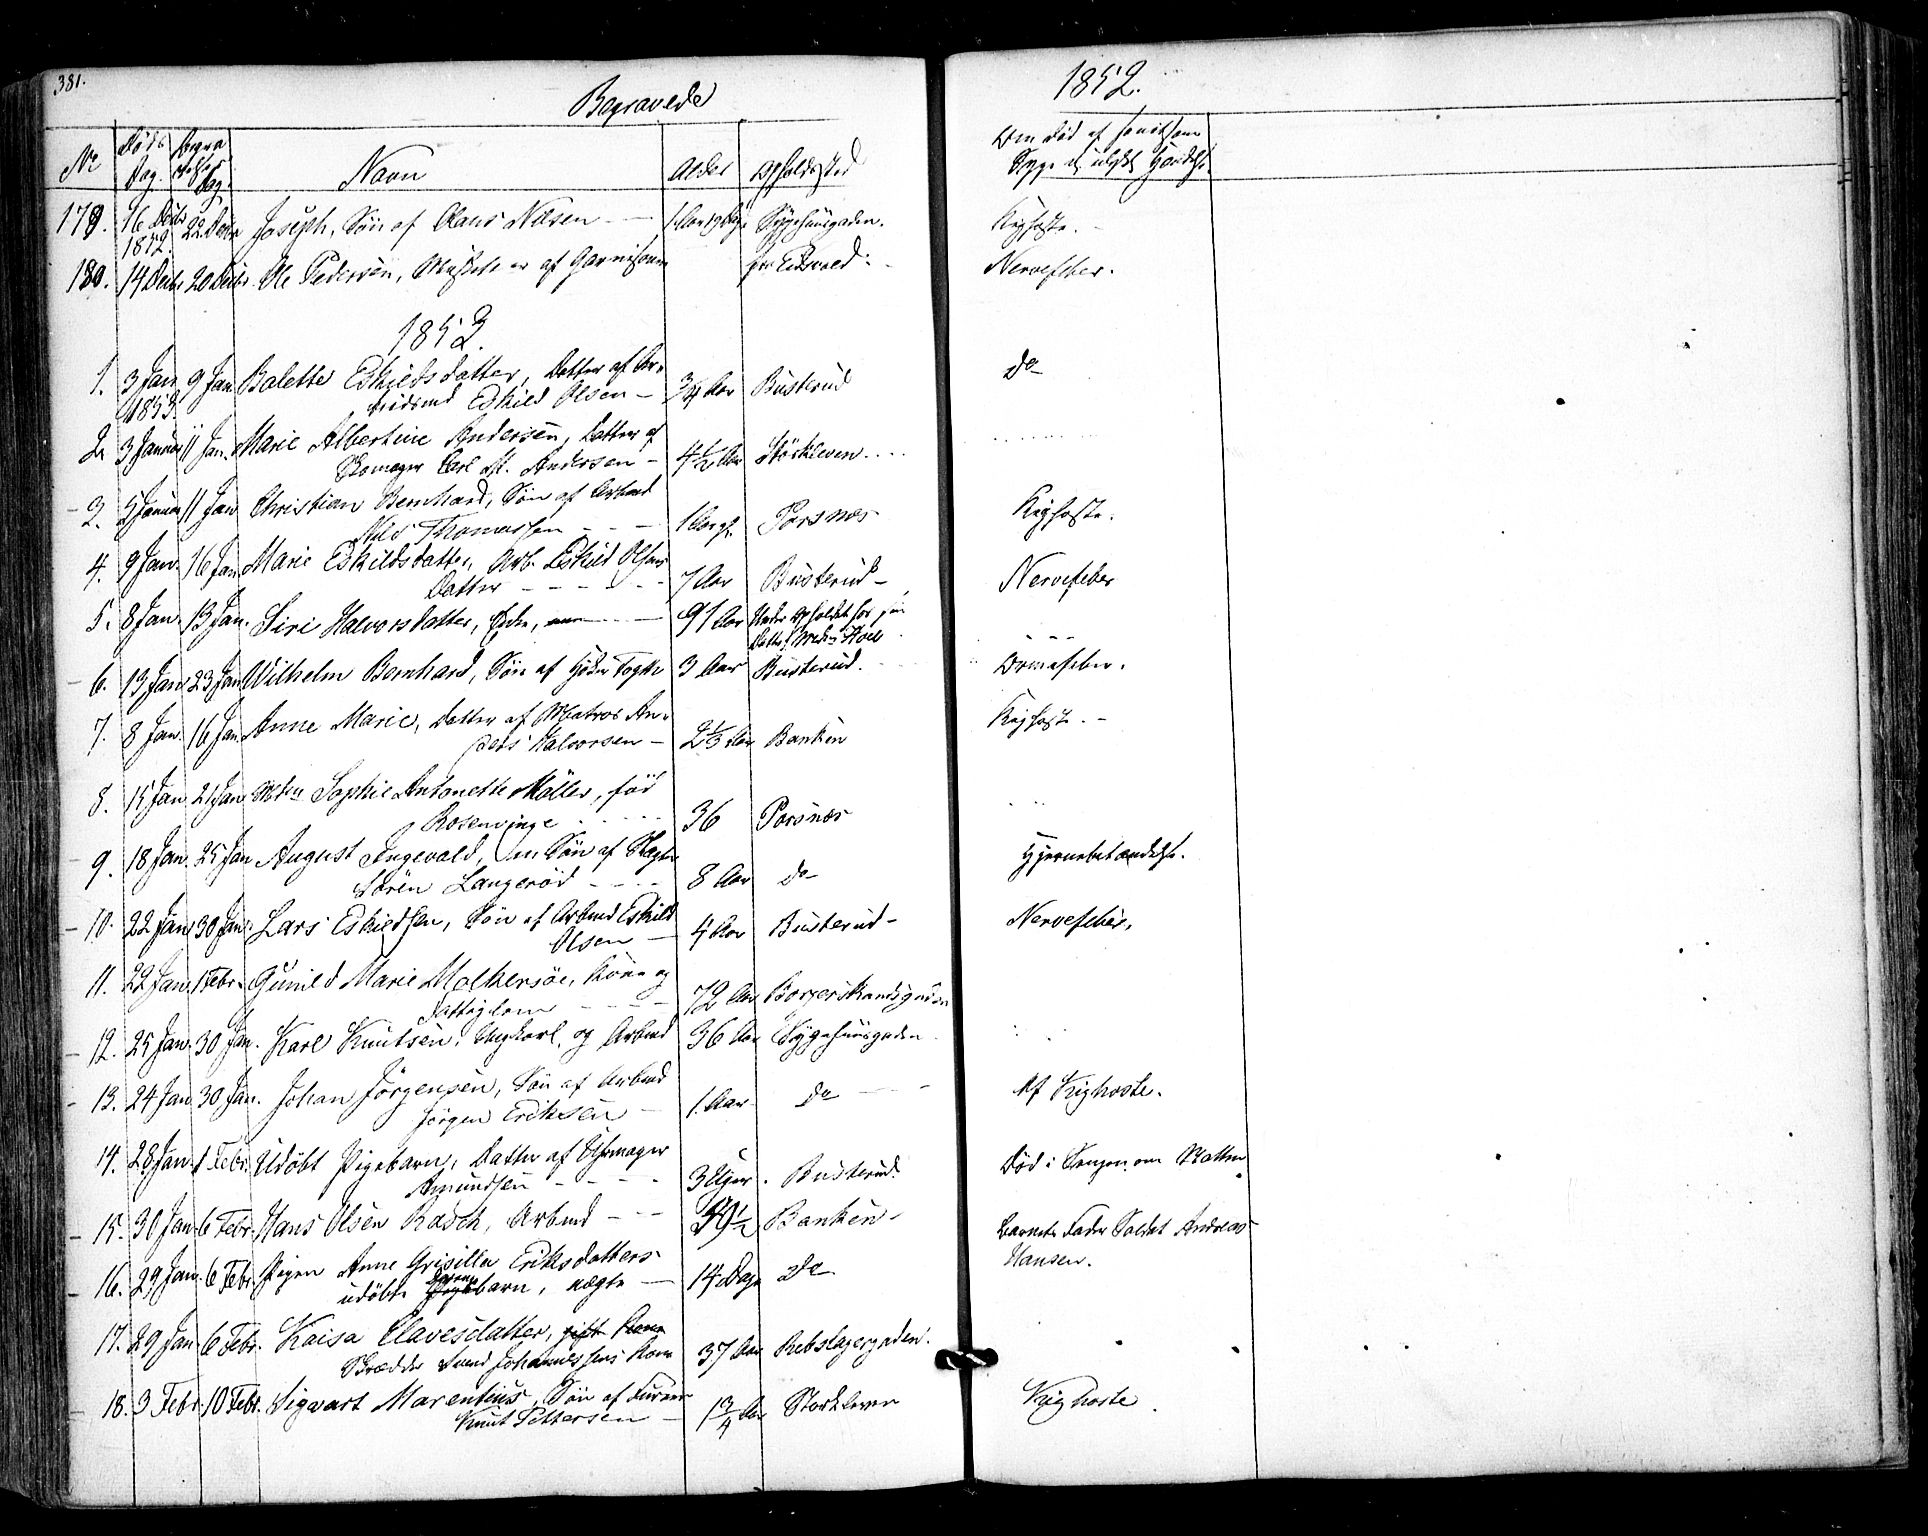 381.
Begravede
1852.
No Døds Dag. Begravelses Dag. Navn Alder Opholdssted Om død af smitsom Syge el. ulykkl. Hændelse
179. 16 Decbr 1852 22 Decbr Joseph, Søn af Olaus Nilsen — 1 Aar 19 Dage Sygehuusgaden. Kighoste.
180. 14 Decbr 20 Decbr Ole Pedersen, Musketeer af Garnisonen fra Eidsvold. Nervefeber.
1853.
1. 3 Jan 1853 9 Jan Bolette Eskildsdatter, Datter af Ar-
beidsmd Eskild Olsen — 3/4 Aar Busterud do
2. 3 Januar 11 Jan. Marie Albertine Andersen, Datter af
Skomager Carl M. Andersen — 4 1/2 Aar Störkleven
3. 5 Januar 11 Jan Christian Bernhard, Søn af Arbmd
Nils Thomassen — 1 Aar gl. Porsnæs Kighoste.
4. 9 Jan. 16 Jan Marie Eskildsdatter, Arb. Eskild Olsens
Datter — 7 Aar Busterud — Nervefeber
5. 8 Jan. 13 Jan. Siri Halvorsdatter, Enke, — 91 Aar Havde Opholdt hos sin
Datter
6. 13 Jan 23 Jan Wilhelm Bernhard, Søn af 3 Aar Busterud.
7. 8 Jan. 16 Jan. Anne Marie, Datter af Matros An-
ders Halvorsen — 2 1/3 Aar Banken Kighoste. —
8. 15 Jan 21 Jan Mdm Sophie Antonette Möller, fød
Rosenvinge 36 Porsnæs
9. 18 Jan. 25 Jan August Ingevald, Søn af
Sören Langeröd — 8 Aar do Hjernebetændelse.
10. 22 Jan 30 Jan. Lars Eskildsen, Søn af Arbmd Eskild
Olsen — 4 Aar Busterud — Nervefeber.
11. 22 Jan. 1 Febr. Gunild Marie Molkersöe, Kone og
Fattiglem — 72 Aar Borgerskandsgaden
12. 25 Jan. 30 Jan. Karl Knutsen, Ungkarl, og Arbmd 36 Aar Sygehuusgaden
13. 24 Jan 30 Jan. Johan Jörgensen, Søn af Arbmd
Jörgen Eriksen — 1 Aar do Af Kighoste.
14. 28 Jan 1 Febr. Udöbt Pigebarn, Datter af Uhrmager
Amundsen — 3 Uger. Busterud. Død i Sengen om Natten
15. 30 Jan 6 Febr. Hans Olsen Rasch, Arbmd — 39 1/2 Banken — Barnets Fader Soldat Andreas
Hansen.
16. 29 Jan. 6 Febr. Pigen Anne Grisilla Eriksdatters
udöbte barn, uægte — 14 Dage do
17. 29 Jan 6 Febr. Kaisa Elavesdatter, gift Kone
Skrædder Svend Johannessens Kone 37 Aar Rebslagergaden.
18. 3 Febr. 10 Febr. Sigvart Marentius, Søn af
Knut Pettersen — 1 3/4 Aar Storkleven Kighoste.